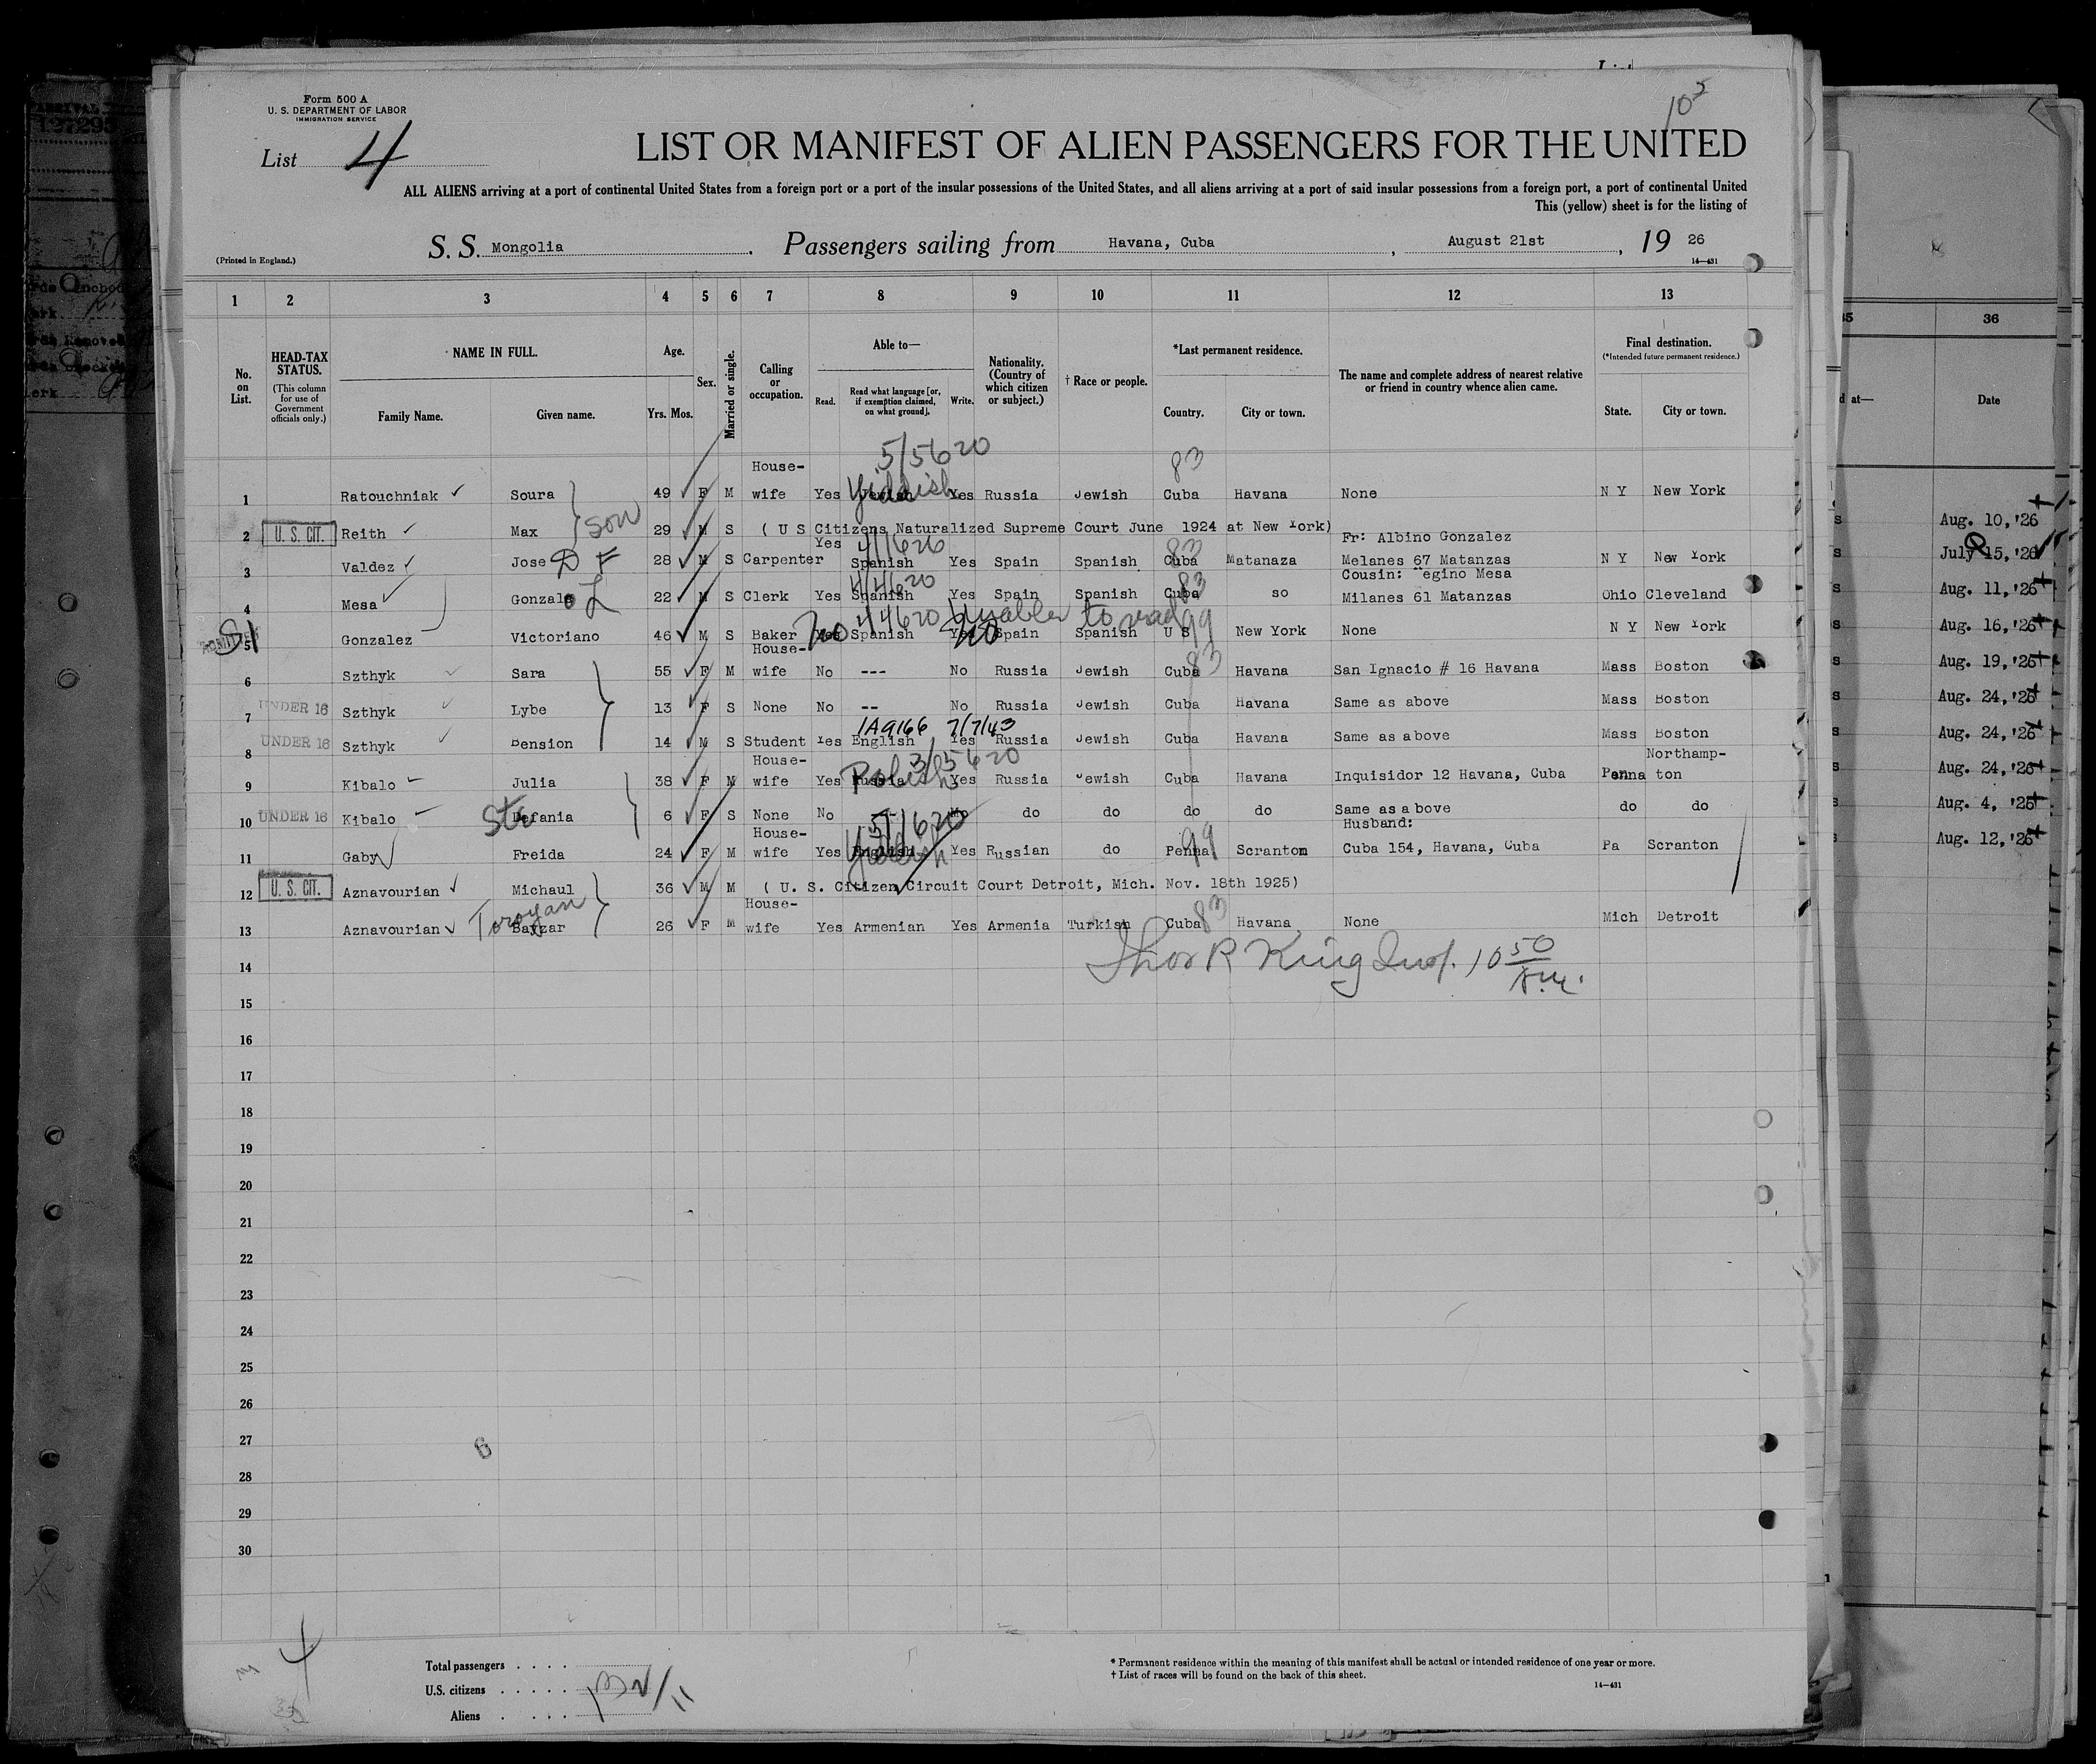 Form 500 A
U. S. DEPARTMENT OF LABOR
IMMIGRATION SERVICE
10
List 4
LIST OR MANIFEST OF ALIEN PASSENGERS FOR THE UNITED
ALL ALIENS arriving at a port of continental United States from a foreign port or a port of the insular possessions of the United States, and all aliens arriving at a port of said insular possessions from a foreign port, a port of continental United
This (yellow) sheet is for the listing of
(Printed in England.)
S. S. Mongolia. Passengers sailing from Havana, Cuba, August 21st, 19 26
14—431
1 2 3 4 5 6 7 8 9 10 11 12 13
No. on List.
HEAD-TAX STATUS. (This column for use of Government officials only.)
NAME IN FULL. Family Name. Given name.
Age. Yrs. Mos.
Sex.
Married or single.
Calling or occupation.
Able to— Read. Read what language [or, if exemption claimed, on what ground]. Write.
Nationality. (Country of which citizen or subject.)
† Race or people.
*Last permanent residence. Country. City or town.
The name and complete address of nearest relative or friend in country whence alien came.
Final destination. (*Intended future permanent residence.) State. City or town.
36
at— Date
5/5620 83
1 Ratouchniak Soura 49 F M House-wife Yes Jewish Yiddish Yes Russia Jewish Cuba Havana None N Y New York
2 U. S. CIT. Reith Max son 29 M S ( U S Citizens Naturalized Supreme Court June 1924 at New York)
3 Valdez Jose D F 28 M S Carpenter Yes 4/1626 Spanish Yes Spain Spanish Cuba 83 Matanaza Fr: Albino Gonzalez Melanes 67 Matanzas N Y New York
4 Mesa Gonzalo L 22 M S Clerk Yes 4/4620 Spanish Yes Spain Spanish Cuba 83 so Cousin: egino Mesa Milanes 61 Matanzas Ohio Cleveland
SI 5 Gonzalez Victoriano 46 M S Baker Yes no 4/4620 Spanish Yes no Unable to read Spain Spanish U S 99 New York None N Y New York
6 Szthyk Sara 55 F M House-wife No --- No Russia Jewish Cuba 83 Havana San Ignacio # 16 Havana Mass Boston
7 UNDER 16 Szthyk Lybe 13 F S None No -- No Russia Jewish Cuba Havana Same as above Mass Boston
8 UNDER 16 Szthyk Bension 14 M S Student Yes 1A9166 7/7/43 English Yes Russia Jewish Cuba Havana Same as above Mass Boston
9 Kibalo Julia 38 F M House-wife Yes Russia Polish 3/5620 Yes Russia Jewish Cuba Havana Inquisidor 12 Havana, Cuba Penna Northamp-ton
10 UNDER 16 Kibalo Ste Defania 6 F S None No No do do do do Same as above do do
11 Gaby Freida 24 F M House-wife Yes 5/1620 English Yiddish Yes Russian do Penna 99 Scranton Husband: Cuba 154, Havana, Cuba Pa Scranton
12 U. S. CIT. Aznavourian Michaul 36 M M ( U. S. Citizen Circuit Court Detroit, Mich. Nov. 18th 1925)
13 Aznavourian Toroyan Bayzar 26 F M House-wife Yes Armenian Yes Armenia Turkish Cuba 83 Havana None Mich Detroit
R King Insp. 10 50 A.M.
14
15
16
17
18
19
20
21
22
23
24
25
26
27 6
28
29
30
Aug. 10, '26
July 15, '26
Aug. 11, '26
Aug. 16, '26
Aug. 19, '26
Aug. 24, '26
Aug. 24, '26
Aug. 24, '26
Aug. 4, '26
Aug. 12, '26
4
Total passengers
U.S. citizens
Aliens
13 2/11
* Permanent residence within the meaning of this manifest shall be actual or intended residence of one year or more.
† List of races will be found on the back of this sheet.
14—431